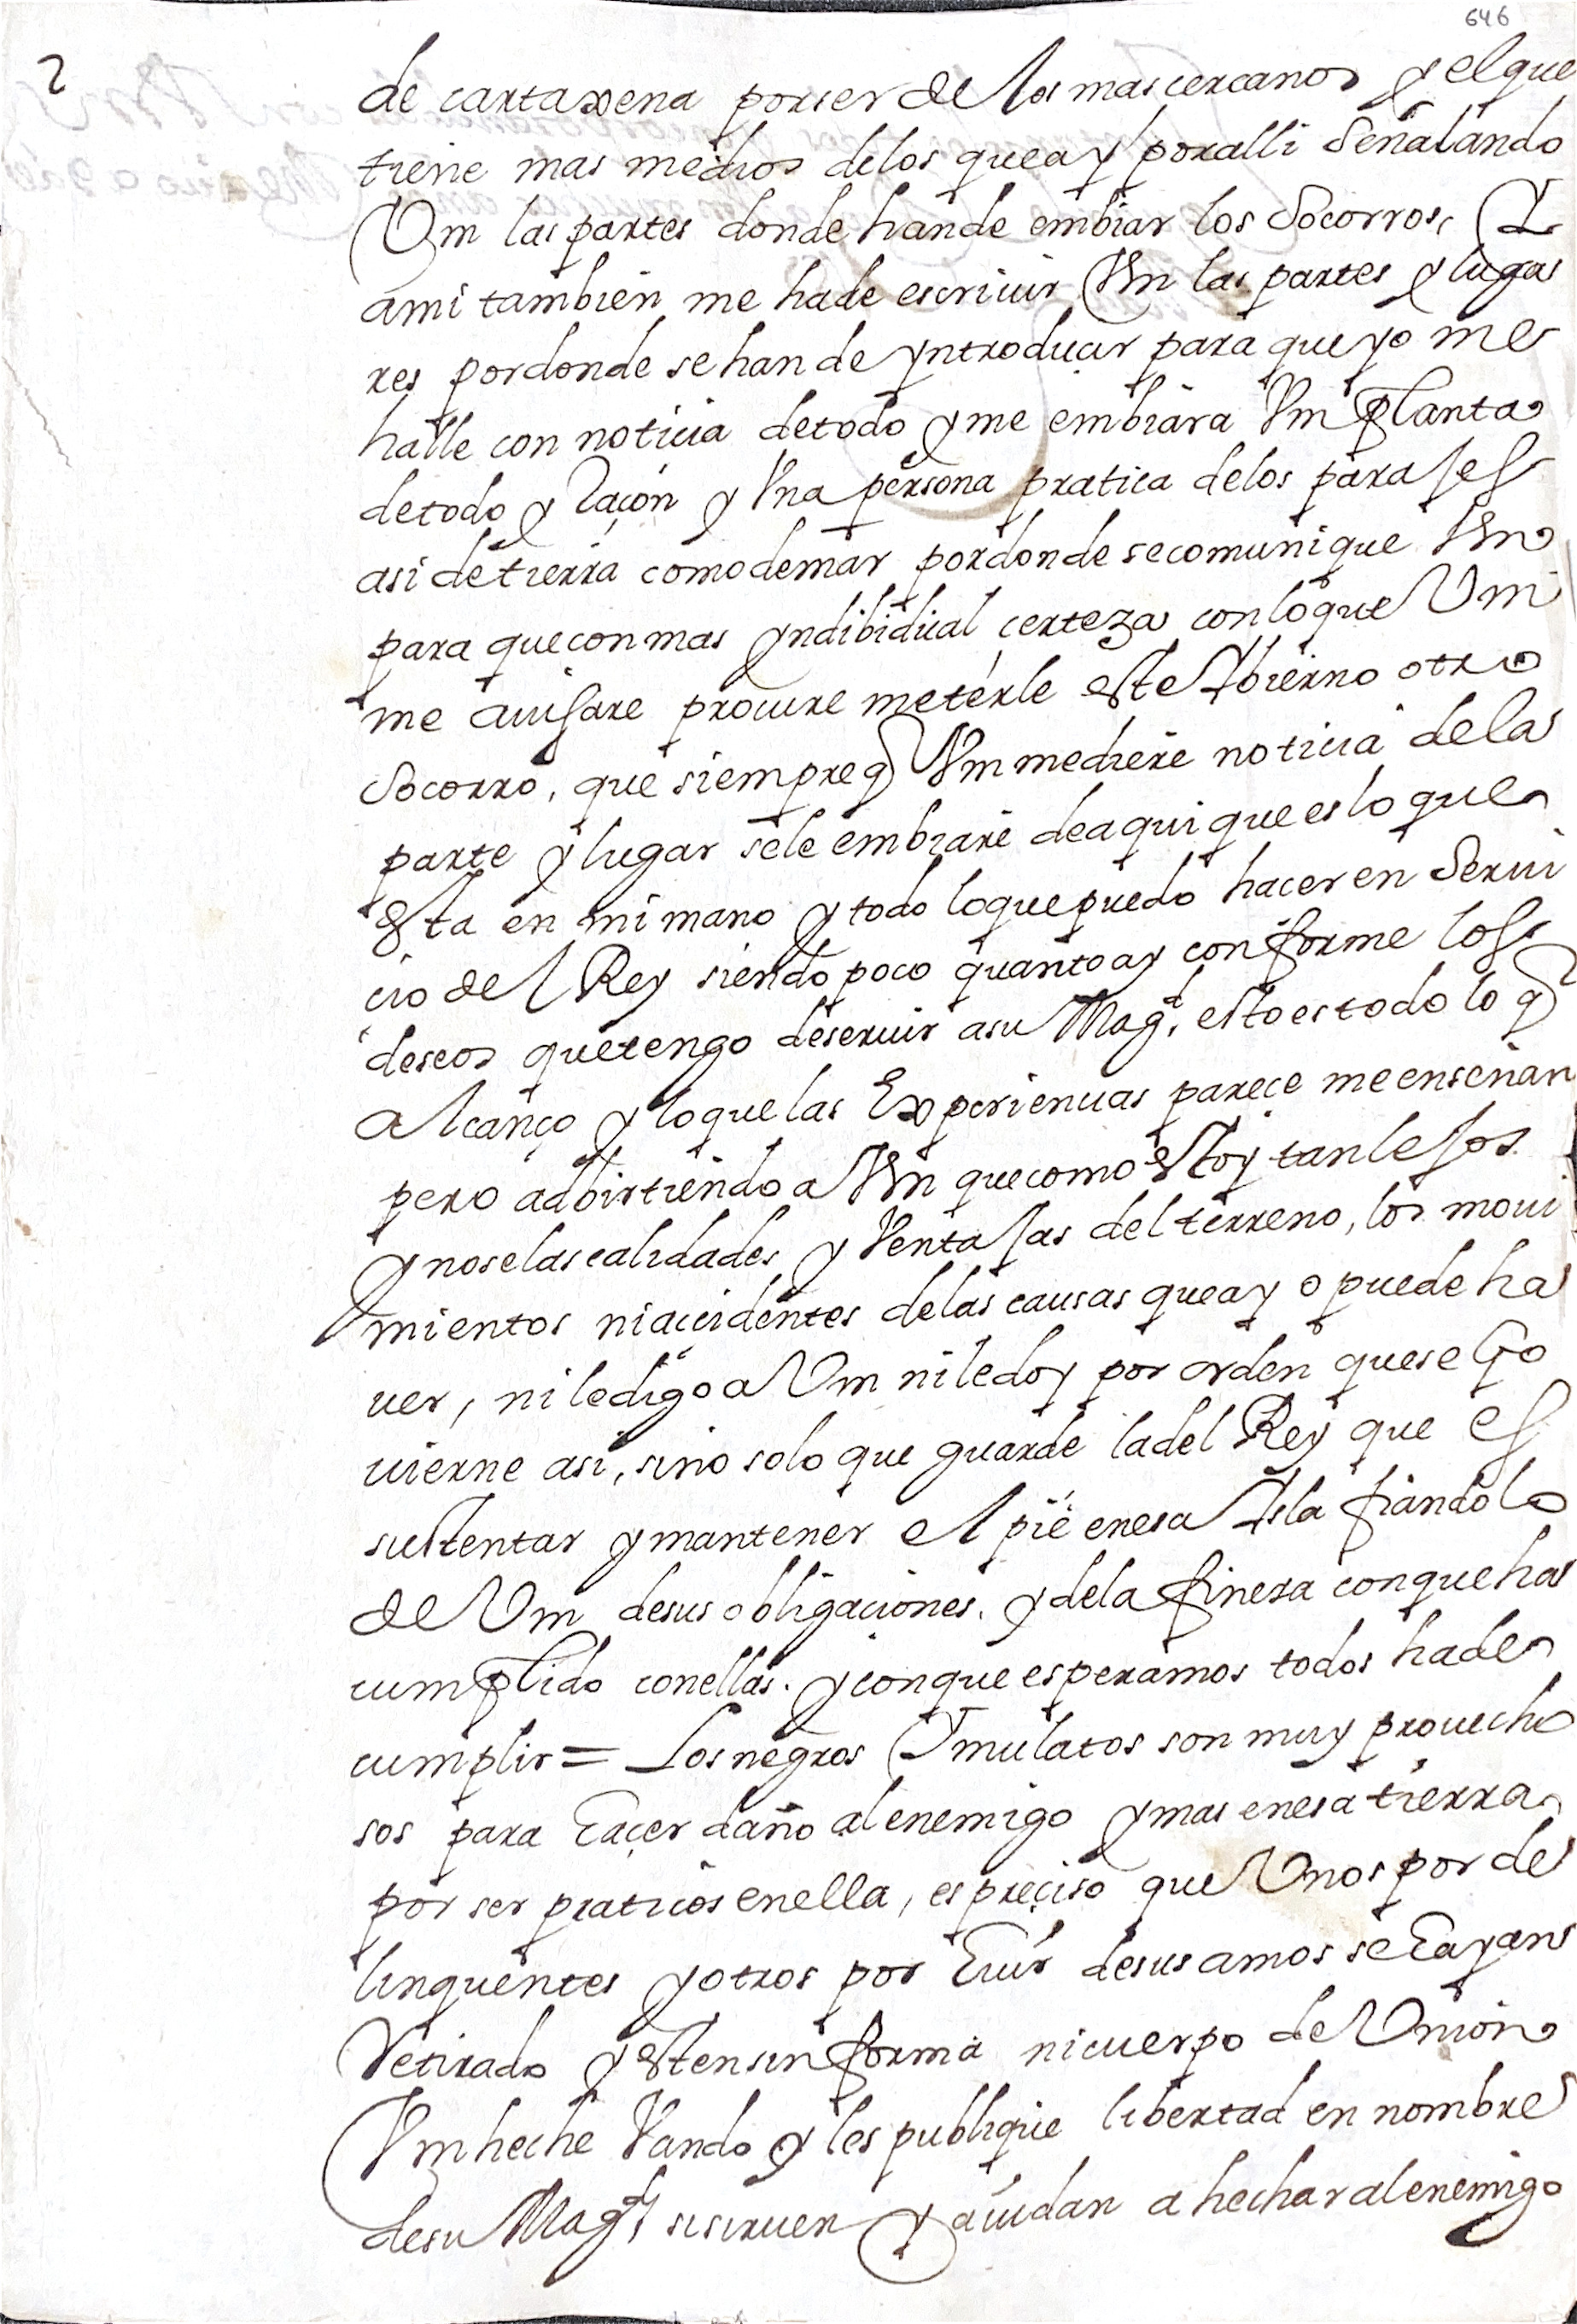 646
2
de cartaxena por ser de los mas cercanos y el que
tiene mas medios de los que ay por alli Señalando
Vm las partes donde han de embiar los Socorros, Y
a mi tambien me ha de escriuir Vm las partes y luga
res por donde se han de yntroducir para que yo me
halle con noticia de todo y me embiara Vm Planta
de todo y Raçon y Vna persona pratica de los parajes
asi de tierra como de mar por donde se comunique Vm
para que con mas yndibidual çerteza con lo que Vm
me auisare procure meterle este Ybierno otro
Socorro, que siempre q Vm me diere noticia de la
parte y lugar se le embiaré de aqui que es lo que
esta en mi mano y todo lo que puedo hacer en Serui
cio del Rey siendo poco quanto ay conforme los
deseos que tengo de seruir a su Magd, esto es todo lo q
alcanço y lo que las Experiencias parece me enseñan
pero adbirtiendo a Vm que como estoy tan lejos
y no se las calidades y Ventajas del terreno, los moui
mientos ni accidentes de las causas que ay o puede ha
uer, ni le digo a Vm ni le doy por orden que se Go
uierne asi, sino solo que guarde la del Rey que es
sustentar y mantener el pie en esa Isla fiandolo
de Vm de sus obligaciones. y de la fineza con que ha
cumplido con ellas. y con que esperamos todos ha de
cumplir = Los negros Y mulatos son muy prouecho
sos para haçer daño al enemigo y mas en esa tierra
por ser praticos en ella, es preçiso que Vnos por de
linquentes y otros por huir de sus amos se hayan
Retirado y esten sin forma ni cuerpo de Vnion
Vm heche Vando y les publique libertad en nombre
de su Magd si siruen y aiudan a hechar al enemigo